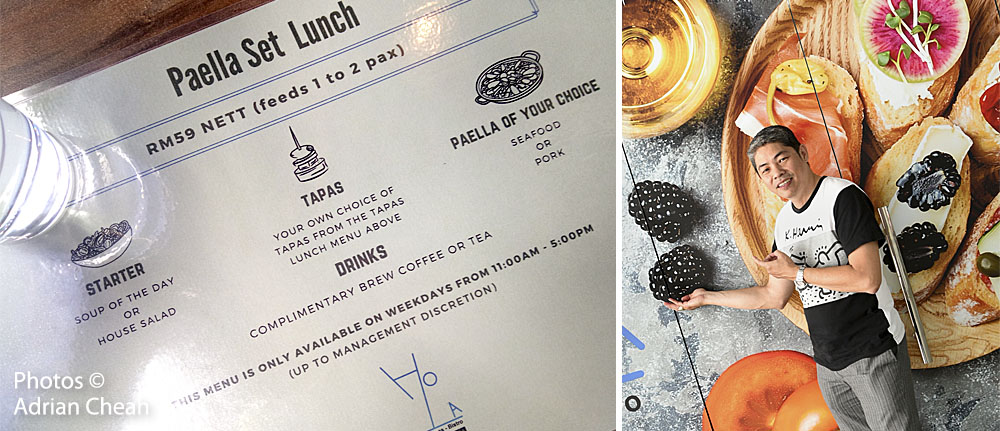 Paella Set Lunch
RM59 NETT (feeds 1 to 2 pax)
STARTER
SOUP OF THE DAY
OR
HOUSE SALAD
TAPAS
YOUR OWN CHOICE OF
TAPAS FROM THE TAPAS
LUNCH MENU ABOVE
PAELLA OF YOUR CHOICE
SEAFOOD
OR
PORK
DRINKS
COMPLIMENTARY BREW COFFEE OR TEA
THIS MENU IS ONLY AVAILABLE ON WEEKDAYS FROM 11:00AM - 5:00PM
(UP TO MANAGEMENT DISCRETION)
HO
A
Bistro
Photos ©
Adrian Cheah
K. Haring
A
O